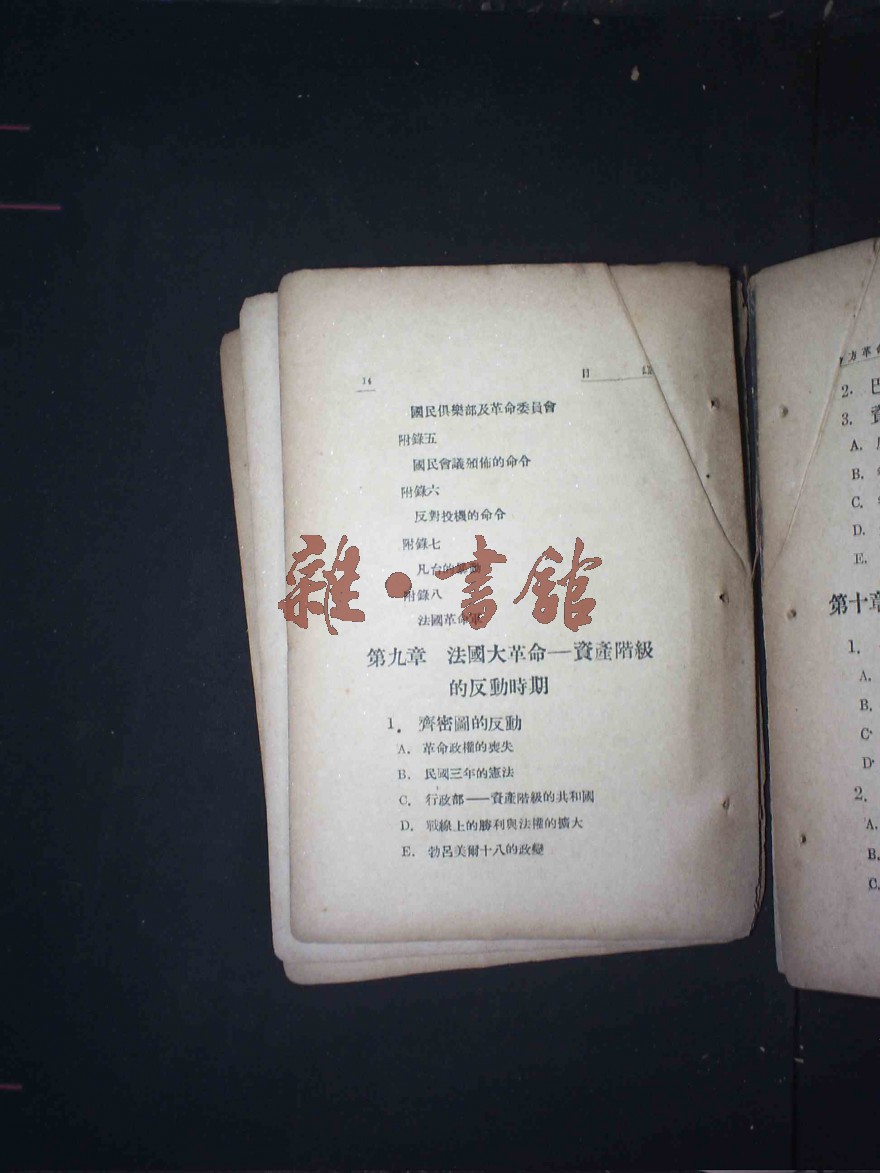 14
國民俱樂部及革命委員會
附錄五
國民會議頒佈的命令
附錄六
反對投機的命令
附錄七
凡台的暴動
附錄八
法國革命軍
雜·書館
第九章 法國大革命——資產階級
的反動時期
1. 齊密圖的反動
A. 革命政權的喪失
B. 民國三年的憲法
C. 行政部——資產階級的共和國
D. 戰線上的勝利與法權的擴大
E. 勃呂美爾十八的政變
方革命
2. 巴
3. 資
A.
B.
C.
D.
E.
第十章
1.
A.
B.
C.
D.
2.
A.
B.
C.